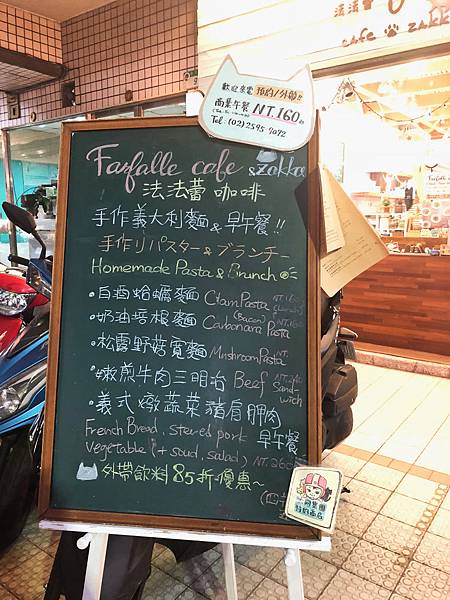 法法蕾
cafe zakka
歡迎來電預約/外帶!!
商業午餐 NT.160起
Tel:(02)2595-9072
Farfalle cafe & zakka
法法蕾咖啡
手作義大利麵 & 早午餐!!
手作リパスター&ブランチー
Homemade Pasta & Brunch
・白酒蛤蠣麵 Clam Pasta NT.160
・奶油培根麵 (Bacon) Carbonara Pasta NT.160
・松露野菇寬麵 Mushroom Pasta NT.
・嫩煎牛肉三明治 Beef Sandwich
・義式燉蔬菜豬肩胛肉
French Bread, stewed pork 早午餐
Vegetable (+ soud, salad) NT.260
外帶飲料85折優惠~